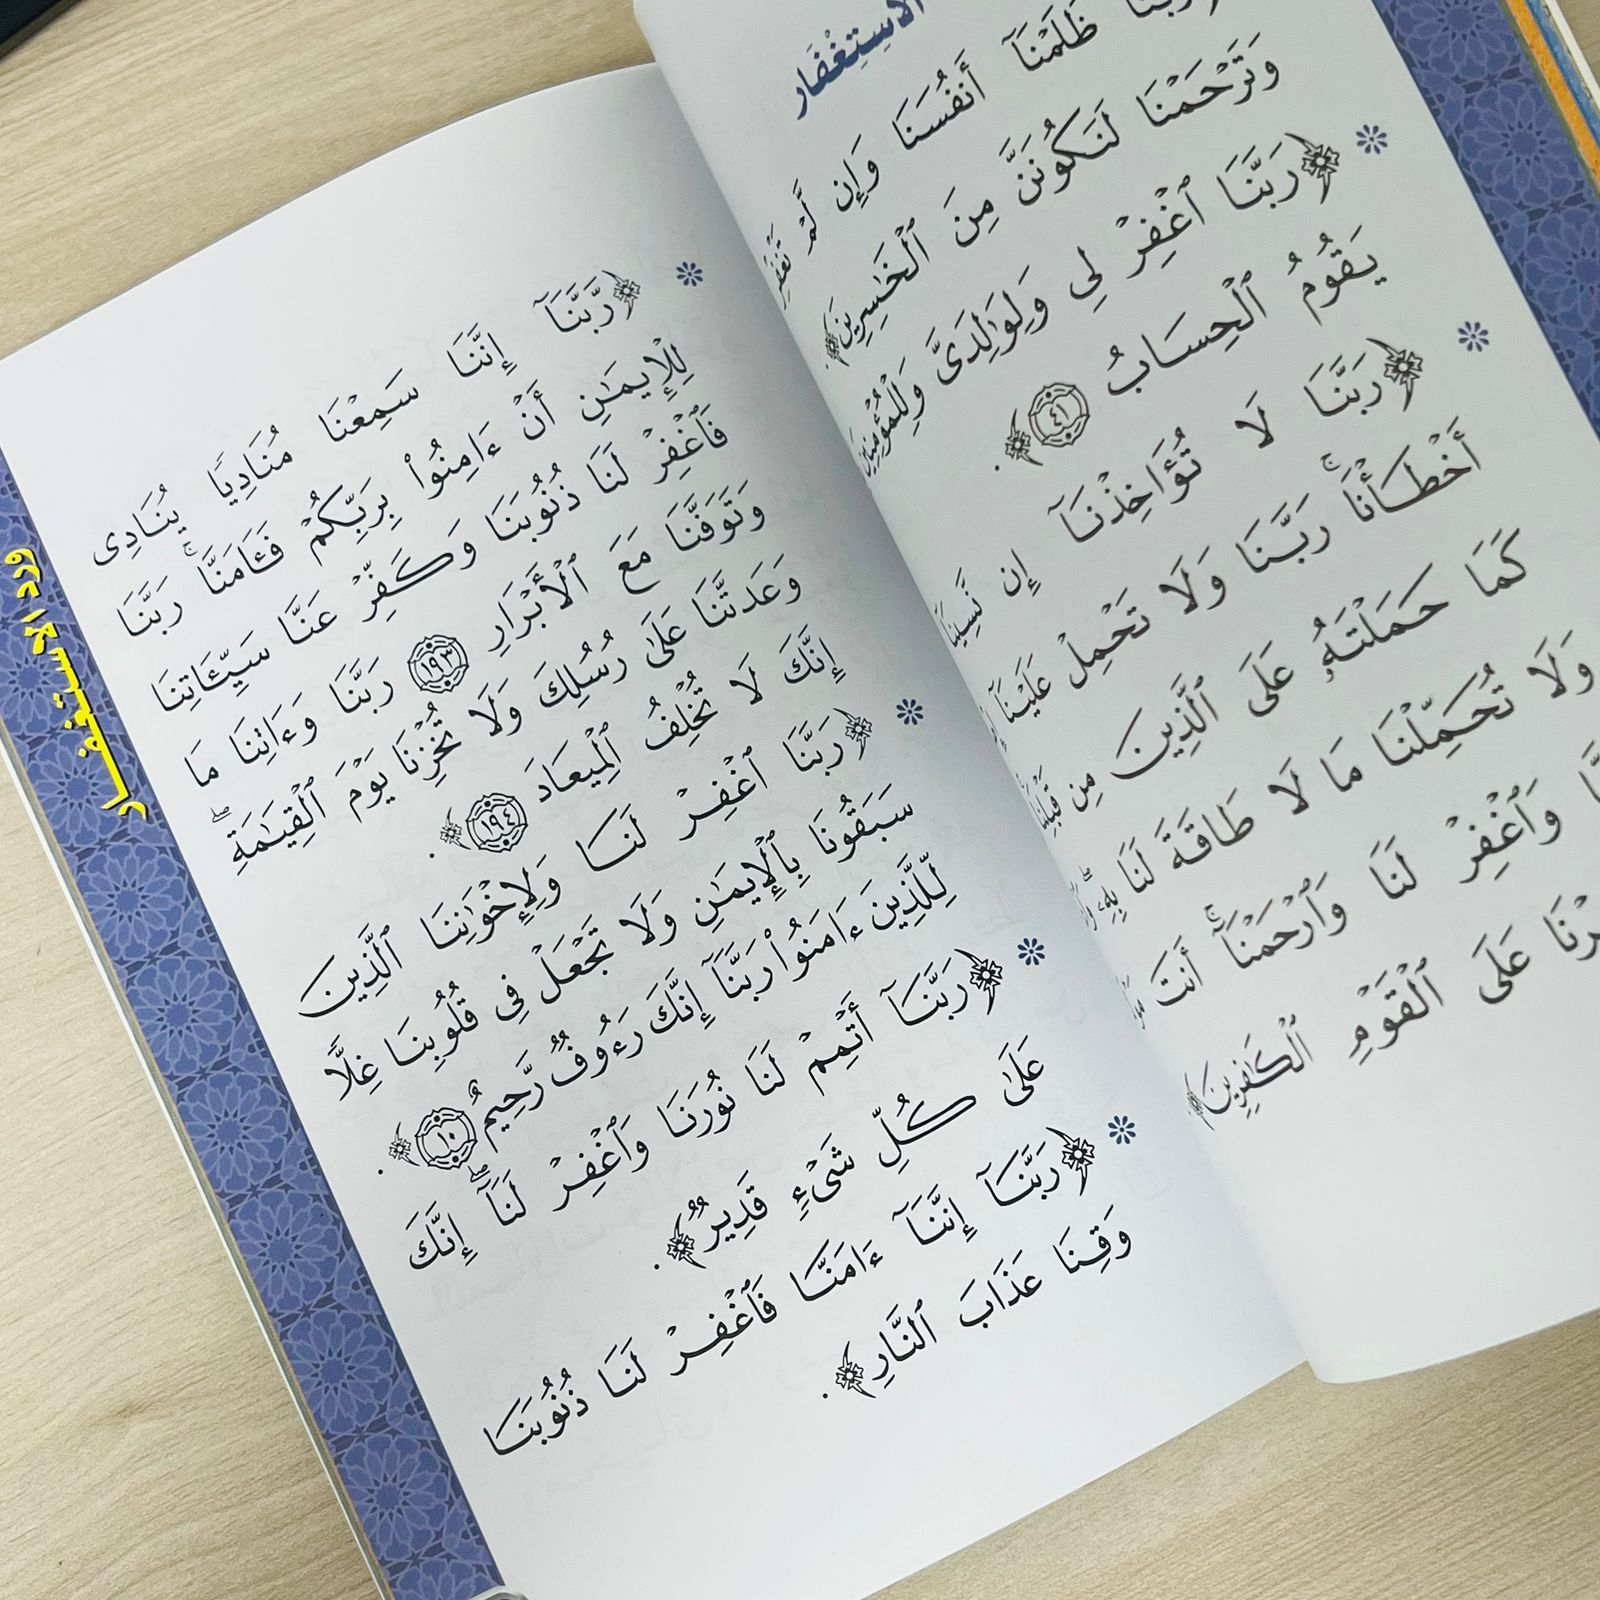 الِاسْتِغْفَار
رَبَّنَا ظَلَمْنَآ أَنفُسَنَا وَإِن لَّمْ تَغْفِرْ
وَتَرْحَمْنَا لَنَكُونَنَّ مِنَ ٱلْخَٰسِرِينَ﴾
﴿رَبَّنَا ٱغْفِرْ لِي وَلِوَٰلِدَىَّ وَلِلْمُؤْمِنِينَ
يَقُومُ ٱلْحِسَابُ ٤١﴾.
﴿رَبَّنَا لَا تُؤَاخِذْنَآ إِن نَّسِينَآ
أَخْطَأْنَاۚ رَبَّنَا وَلَا تَحْمِلْ عَلَيْنَآ
كَمَا حَمَلْتَهُۥ عَلَى ٱلَّذِينَ مِن قَبْلِنَا
وَلَا تُحَمِّلْنَا مَا لَا طَاقَةَ لَنَا بِهِۦۖ
وَٱغْفِرْ لَنَا وَٱرْحَمْنَآۚ أَنتَ
عَلَى ٱلْقَوْمِ ٱلْكَٰفِرِينَ﴾
﴿رَّبَّنَآ إِنَّنَا سَمِعْنَا مُنَادِيًا يُنَادِى
لِلْإِيمَٰنِ أَنْ ءَامِنُوا۟ بِرَبِّكُمْ فَـَٔامَنَّاۚ رَبَّنَا
فَٱغْفِرْ لَنَا ذُنُوبَنَا وَكَفِّرْ عَنَّا سَيِّـَٔاتِنَا
وَتَوَفَّنَا مَعَ ٱلْأَبْرَارِ ١٩٣ رَبَّنَا وَءَاتِنَا مَا
وَعَدتَّنَا عَلَىٰ رُسُلِكَ وَلَا تُخْزِنَا يَوْمَ ٱلْقِيَٰمَةِۖ
إِنَّكَ لَا تُخْلِفُ ٱلْمِيعَادَ ١٩٤﴾.
﴿رَبَّنَا ٱغْفِرْ لَنَا وَلِإِخْوَٰنِنَا ٱلَّذِينَ
سَبَقُونَا بِٱلْإِيمَٰنِ وَلَا تَجْعَلْ فِى قُلُوبِنَا غِلًّا
لِّلَّذِينَ ءَامَنُوا۟ رَبَّنَآ إِنَّكَ رَءُوفٌ رَّحِيمٌ ١٠﴾.
﴿رَبَّنَآ أَتْمِمْ لَنَا نُورَنَا وَٱغْفِرْ لَنَآۖ إِنَّكَ
عَلَىٰ كُلِّ شَىْءٍ قَدِيرٌ﴾.
﴿رَبَّنَآ إِنَّنَآ ءَامَنَّا فَٱغْفِرْ لَنَا ذُنُوبَنَا
وَقِنَا عَذَابَ ٱلنَّارِ﴾.
ورد الاستغفار